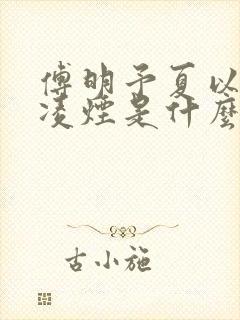 傅明予夏以
凌煙是什麼
古小施